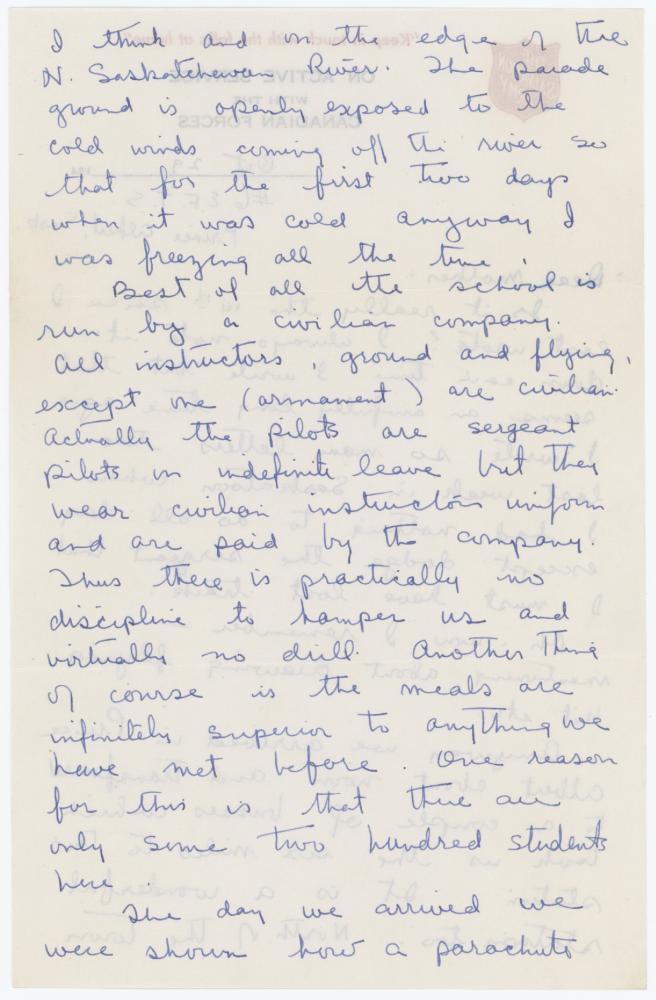 I think and on the edge of the
N. Saskatchewan River. The parade
ground is openly exposed to the
cold winds coming off the river so
that for the first two days
when it was cold anyway I
was freezing all the time.
Best of all the school is
run by a civilian company.
All instructors, ground and flying,
except one (armament) are civilian.
Actually the pilots are sergeant
pilots on indefinite leave but they
wear civilian instructors uniform
and are paid by the company.
Thus there is practically no
discipline to hamper us and
virtually no drill. Another thing
of course is the meals are
infinitely superior to anything we
have met before. One reason
for this is that there are
only some two hundred students
here.
The day we arrived we
were shown how a parachute